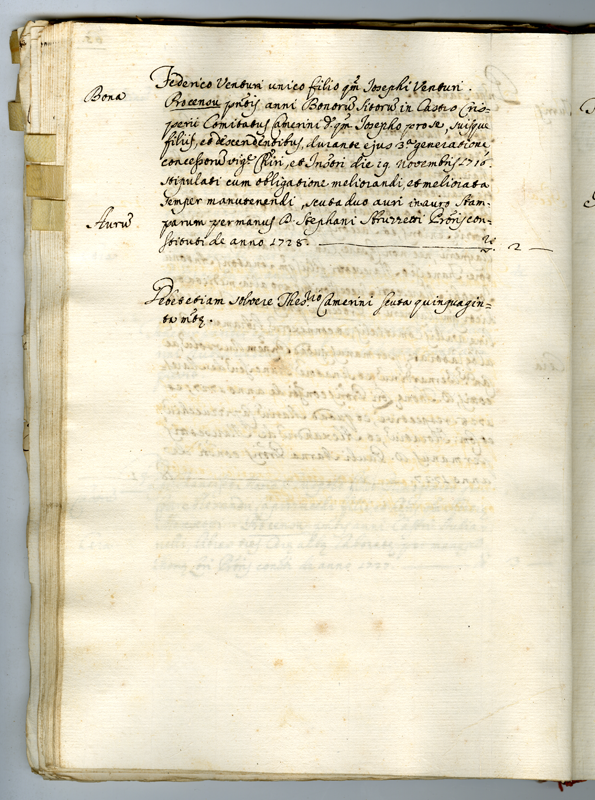 Federico Venturi unico filio qm Josephi Venturi.
Bona
Pro censu pntis anni Bonorũ sitorũ in Castro
perii Comitatus Camerini d. qm Josepho pro se, suisque
filiis, et descendentibus, durante ejus 3ª generatione
concessorũ vig. et Instri die 19 Novembris 1716.
stipulati cum obligatione meliorandi, et meliorata
semper manutenendi, scuta duo auri in auro stam-
Aurũ
parum per manus D. Stephani Struzzetti con-
stituti de anno 1728. 2
Debet etiam solvere Camerini scuta quinquagin-
ta